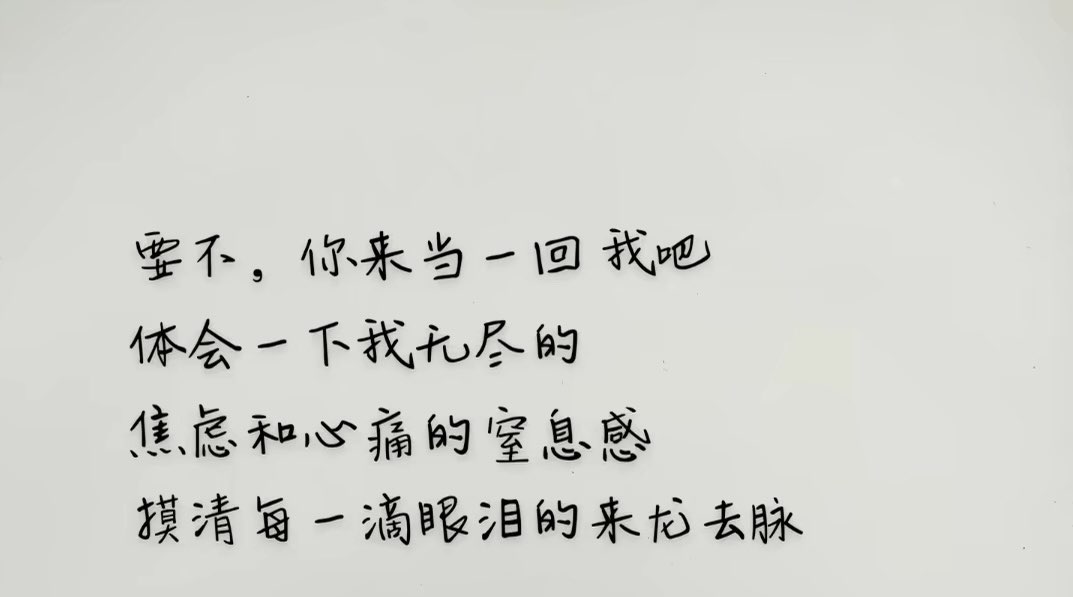 要不，你来当一回我吧
体会一下我无尽的
焦虑和心痛的窒息感
摸清每一滴眼泪的来龙去脉